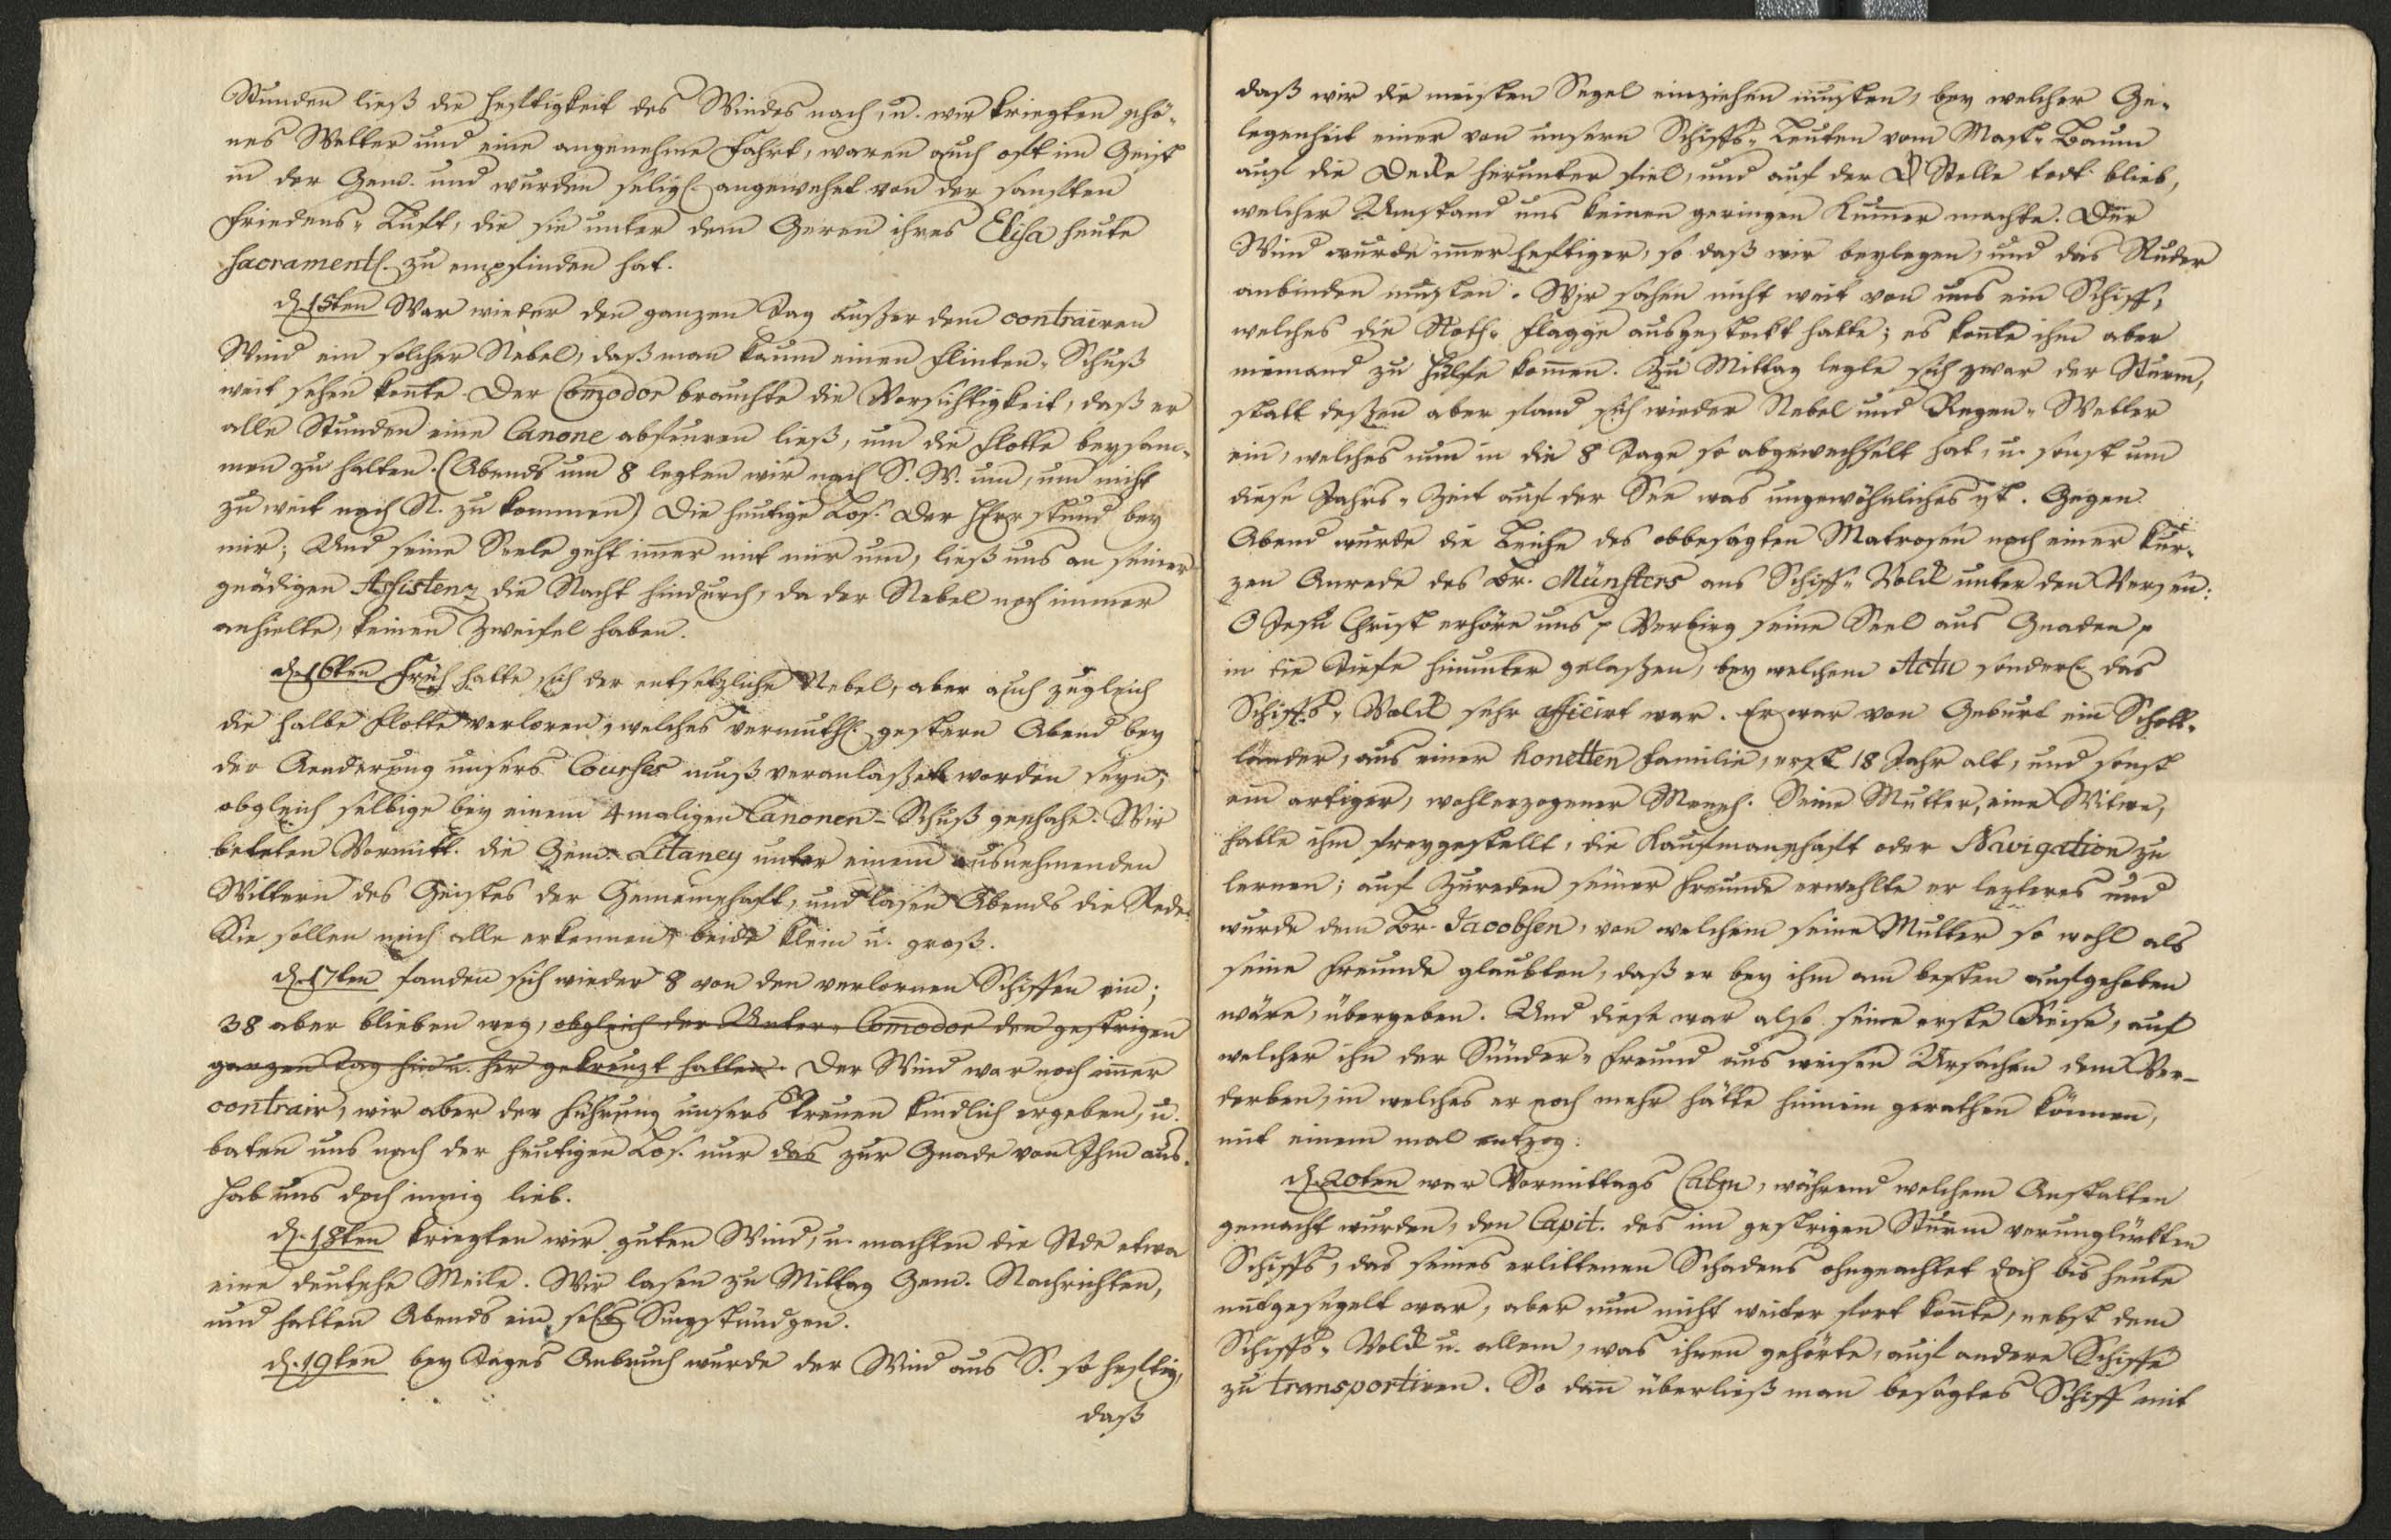 Stunden ließ die Heftigkeit des Windes nach, u. wir kriegten schö-
nes Wetter und eine angenehme Fahrt, waren auch oft im Geist
in der Gem. und wurden selig angewehet von der sanften
Friedens-Luft, die sie unter dem Geren ihres Elisa heute
sacramentl. zu empfinden hat.
d. 15ten War wieder den ganzen Tag außer dem contrairen
Wind ein solcher Nebel, daß man kaum einen Flinten-Schuß
weit sehen konte. Der Com̄odor brauchte die Vorsichtigkeit, daß er
alle Stunden eine Canone abfeuren ließ, um die Flotte beysam-
men zu halten. (Abends um 8 legten wir nach S. W. um, um nicht
zu weit nach N. zu kommen) Die heutige Los. Der HErr stund bey
mir; Und seine Seele geht im̄er mit mir um, ließ uns an seiner
gnädigen Assistenz die Nacht hindurch, da der Nebel noch immer
anhielte, keinen Zweifel haben.
d. 16ten Früh hatte sich der entsetzliche Nebel, aber auch zugleich
die halbe Flotte verloren, welches vermuthl. gestern Abend bey
der Aenderung unsers Courses muß veranlaßet worden seyn;
obgleich selbige bey einem 4maligen Canonen-Schuß geschahe. Wir
beteten Vormitt. die Gem. Litaney unter einem ausnehmenden
Wittern des Geistes der Gemeinschaft, und lasen Abends die Rede:
Sie sollen mich alle erkennen, beide klein u. groß.
d. 17ten fanden sich wieder 8 von den verlornen Schiffen ein;
38 aber blieben weg, obgleich der Unter-Com̄odor den gestrigen
ganzen Tag hin u. her gekreuzt hatten. Der Wind war noch im̄er
contrair, wir aber der Führung unsers Treuen kindlich ergeben, u.
baten uns nach der heutigen Los. nur das zur Gnade von Ihm aus.
Hab uns doch innig lieb.
d. 18ten kriegten wir guten Wind, u. machten die Stde etwa
eine deutsche Meile. Wir lasen zu Mittag Gem. Nachrichten,
und hatten Abends ein Singstündgen.
d. 19ten bey Tages Anbruch wurde der Wind aus S. so heftig,
daß
daß wir die meisten Segel einziehen musten, bey welcher Ge-
legenheit einer von unsern Schiffs-Leuten vom Mast-Baum
auf die Decke herunter fiel, und auf der Stelle todt blieb,
welcher Umstand uns keinen geringen Kum̄er machte. Der
Wind wurde im̄er heftiger, so daß wir beylegen, und das Ruder
anbinden musten. Wir sahen nicht weit von uns ein Schiff,
welches die Noth-Flagge ausgesteckt hatte; es konte ihm aber
niemand zu Hülfe kom̄en. Zu Mittag legte sich zwar der Sturm,
statt deßen aber fand sich wieder Nebel und Regen-Wetter
ein, welches nun in die 8 Tage so abgewechselt hat, u. sonst um
diese Jahrs-Zeit auf der See was ungewöhnliches ist. Gegen
Abend wurde die Leiche des obbesagten Matrosen nach einer kur-
zen Anrede des Br. Münsters ans Schiff-Volck unter den Versen:
O Jesu Christ erhöre uns p Verbirg seine Seel aus Gnaden p
in die Tiefe hinunter gelaßen, bey welchem Actu sonderl. das
Schiffs-Volck sehr afficirt war. Er war von Geburt ein Schott-
länder, aus einer honetten Familie, erst 18 Jahr alt, und sonst
ein artiger, wohlerzogener Mensch. Seine Mutter, eine Witwe,
hatte ihm freygestellt, die Kaufmanschaft oder Navigation zu
lernen; auf Zureden seiner Freunde erwehlte er lezteres und
wurde dem Br. Jacobsen, von welchem seine Mutter so wohl als
seine Freunde glaubten, daß er bey ihm am besten aufgehoben
wäre, übergeben. Und diese war also seine erste Reise, auf
welcher ihn der Sünder-Freund aus weisen Ursachen dem Ver-
derben, in welches er noch mehr hätte hinein gerathen können,
mit einem mal entzog.
d. 20ten war Vormittags Calm, während welchem Anstalten
gemacht wurden, den Capit. des im gestrigen Sturm verunglückten
Schiffs, das seines erlittenen Schadens ohngeachtet doch bis heute
mitgesegelt war, aber nun nicht weiter fort konte, nebst dem
Schiffs-Volck u. allem, was ihnen gehörte, auf andere Schiffe
zu transportiren. So dan̄ überließ man besagtes Schiff mit